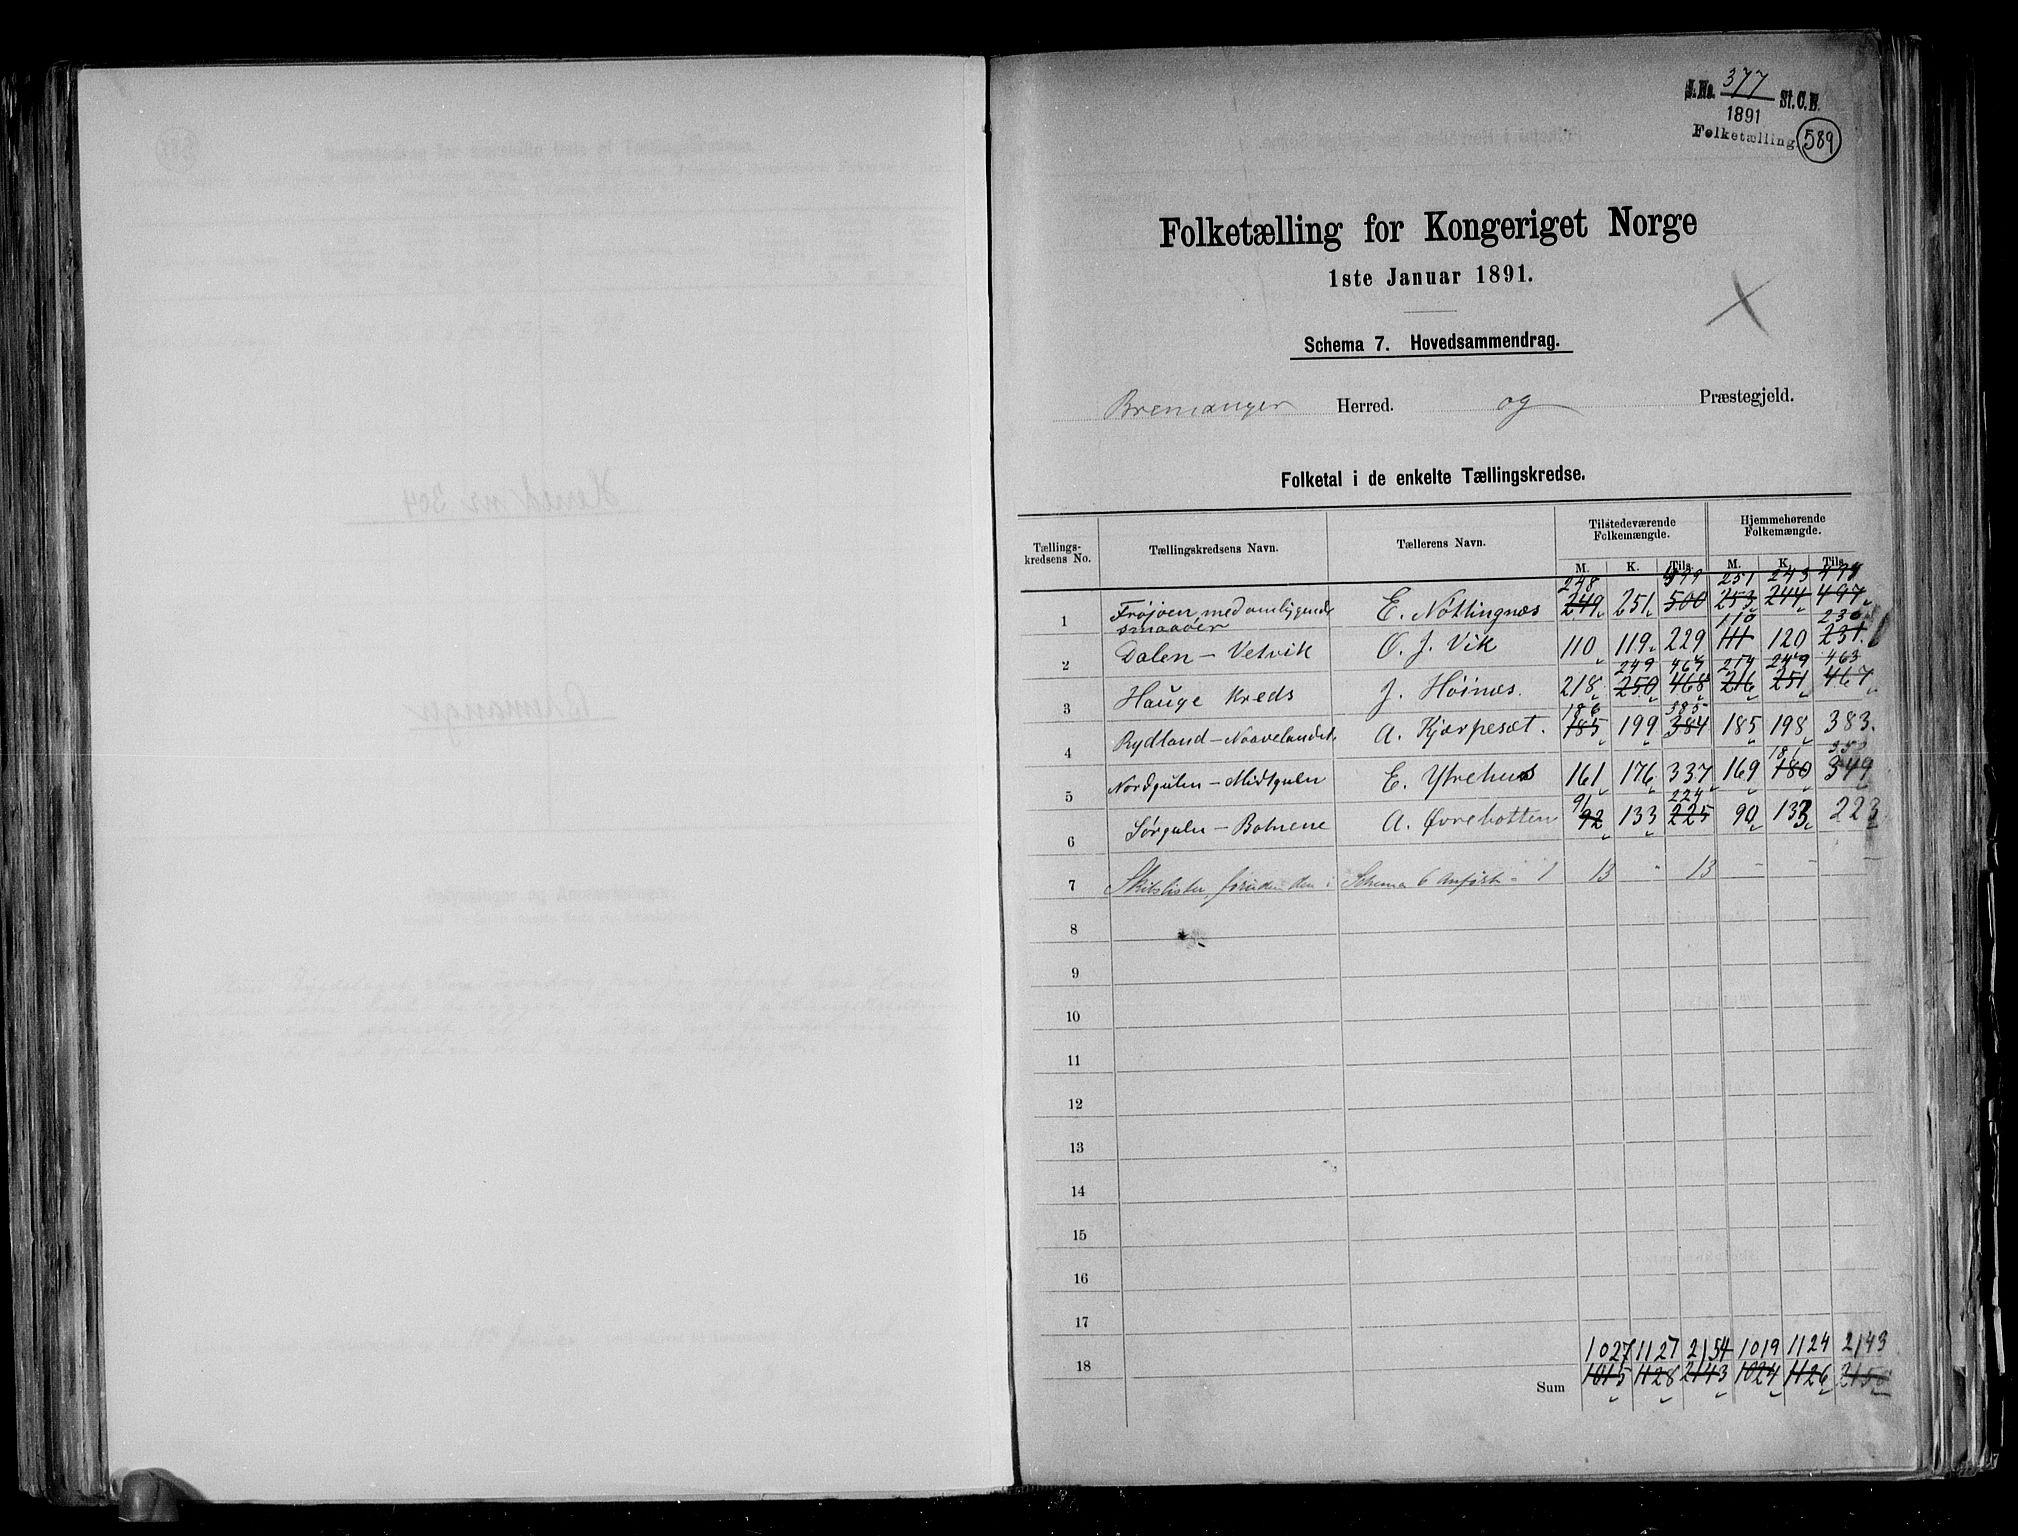 J.No. 377 St. C. B.
1891
Folketælling 589
Folketælling for Kongeriget Norge
1ste Januar 1891.
Schema 7. Hovedsammendrag.
Bremanger Herred. og Præstegjeld.
Folketal i de enkelte Tællingskredse.
Tællings-kredsens No. Tællingskredsens Navn. Tællerens Navn. Tilstedeværende Folkemængde. Hjemmehørende Folkemængde.
M. K. Tils. M. K. Tils.
248 499 251 243 494
1 Frøjøen med omliggende smaaøer E. Nøttingnæs 249 251 500 253 244 497
110 230
2 Dalen - Vetvik O. J. Vik 110 119 229 111 120 231
249 467 214 249 463
3 Hauge Kreds J. Høinæs. 218 250 468 216 251 467
186 385
4 Rydland - Naavelandet. A. Kjærpesæt. 185 199 384 185 198 383.
181 350
5 Nordgulen - Midtgulen E. Ytrehus 161 176 337 169 180 349
91 224
6 Sørgulen - Botnene A. Øvrebotten 92 133 225 90 133 223
7 Skibslister, foruden den i Schema 6 anført - 1 13 - 13 - - -
8
9
10
11
12
13
14
15
16
17
18
1027 1127 2154 1019 1124 2143
Sum 1015 1128 2143 1024 1126 2150
Herred nr 304
Bremanger